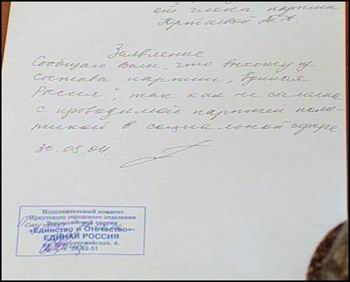 ой члена партии
Юртаевой М. А.
Заявление
Сообщаю Вам, что выхожу из
состава партии „Единая
Россия", так как не согласна
с проводимой партией поли-
тикой в социальной сфере.
30.08.04
Исполнительный комитет
Иркутского городского отделения
Всероссийской партии
«Единство и Отечество»-
ЕДИНАЯ РОССИЯ